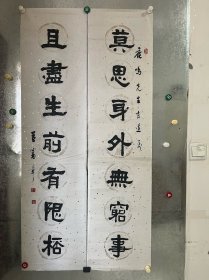 莫思身外無窮事
且盡生前有限桮